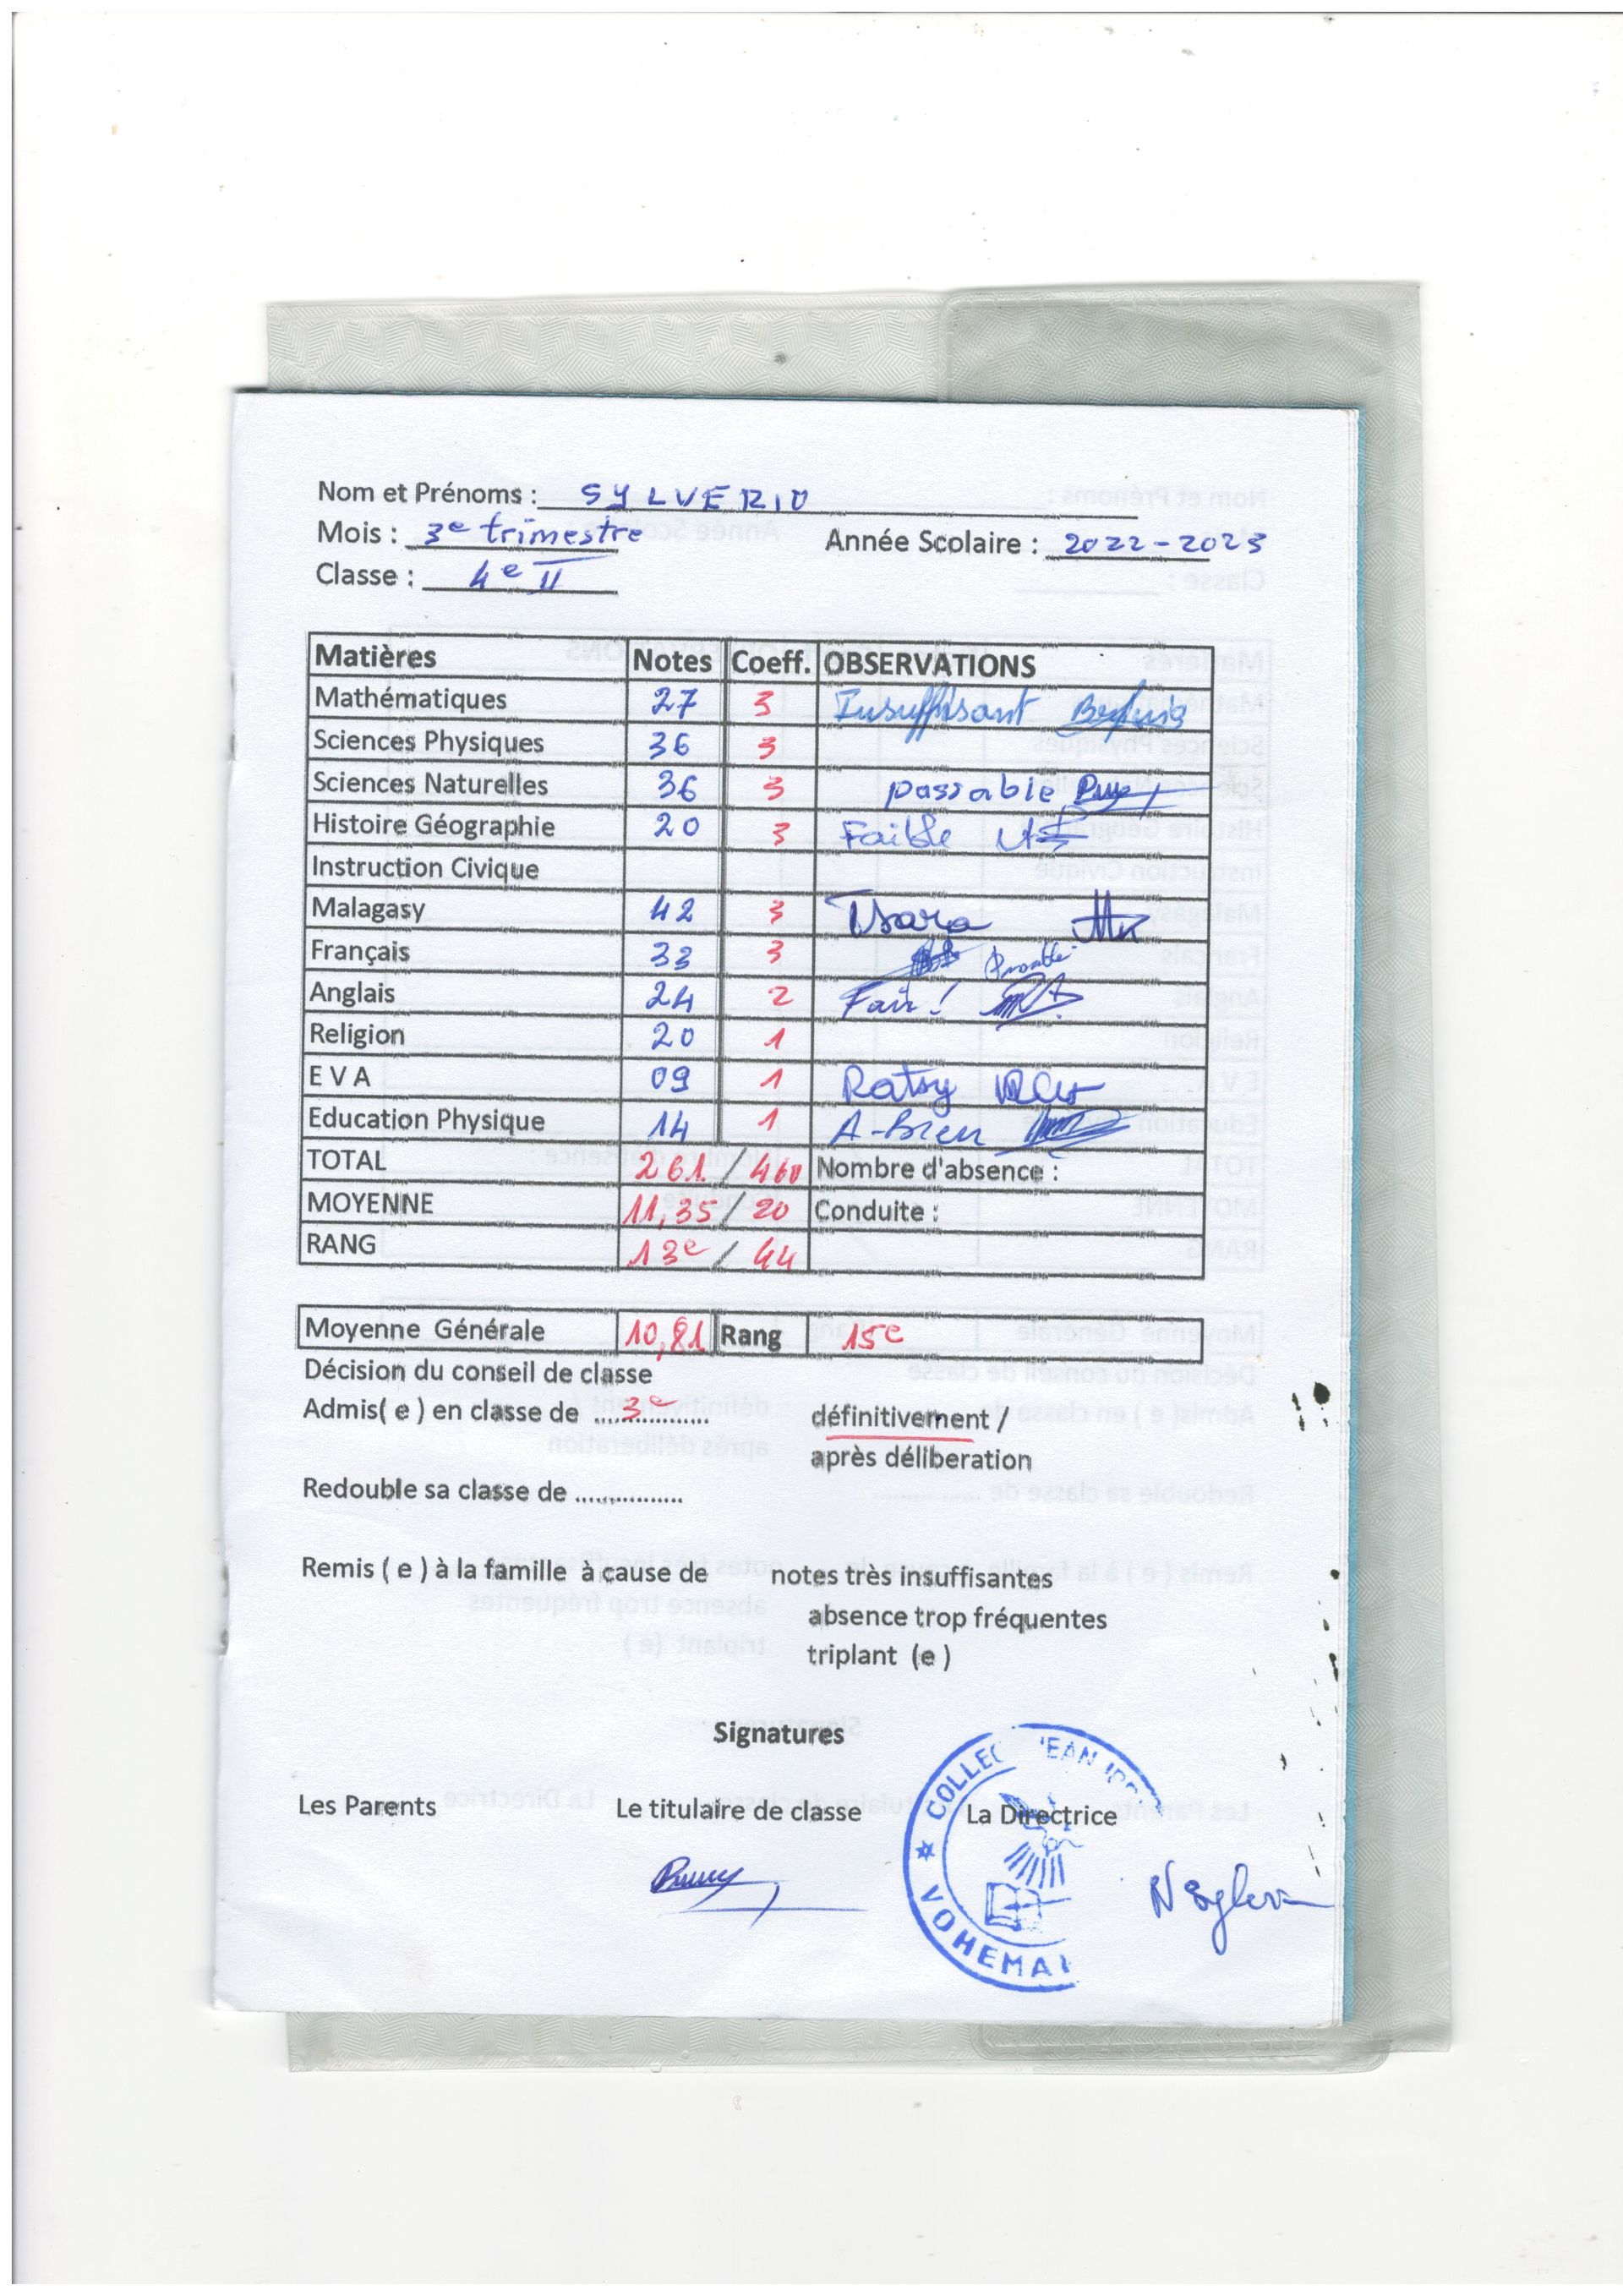 Nom et Prénoms : SYLVERIO
Mois : 3e trimestre Année Scolaire : 2022-2023
Classe : 4e II
Matières Notes Coeff. OBSERVATIONS
Mathématiques 27 3 Insuffisant
Sciences Physiques 36 3
Sciences Naturelles 36 3 passable
Histoire Géographie 20 3 Faible
Instruction Civique
Malagasy 42 3 Tsara
Français 33 3
Anglais 24 2 Fair!
Religion 20 1
E V A 09 1 Ratsy
Education Physique 14 1 A-Bien
TOTAL 261 / 460 Nombre d'absence :
MOYENNE 11,35 / 20 Conduite :
RANG 13e / 44
Moyenne Générale 10,81 Rang 15e
Décision du conseil de classe
Admis( e ) en classe de ...3e............. définitivement /
après déliberation
Redouble sa classe de ................
Remis ( e ) à la famille à cause de notes très insuffisantes
absence trop fréquentes
triplant (e )
Signatures
Les Parents Le titulaire de classe La Directrice